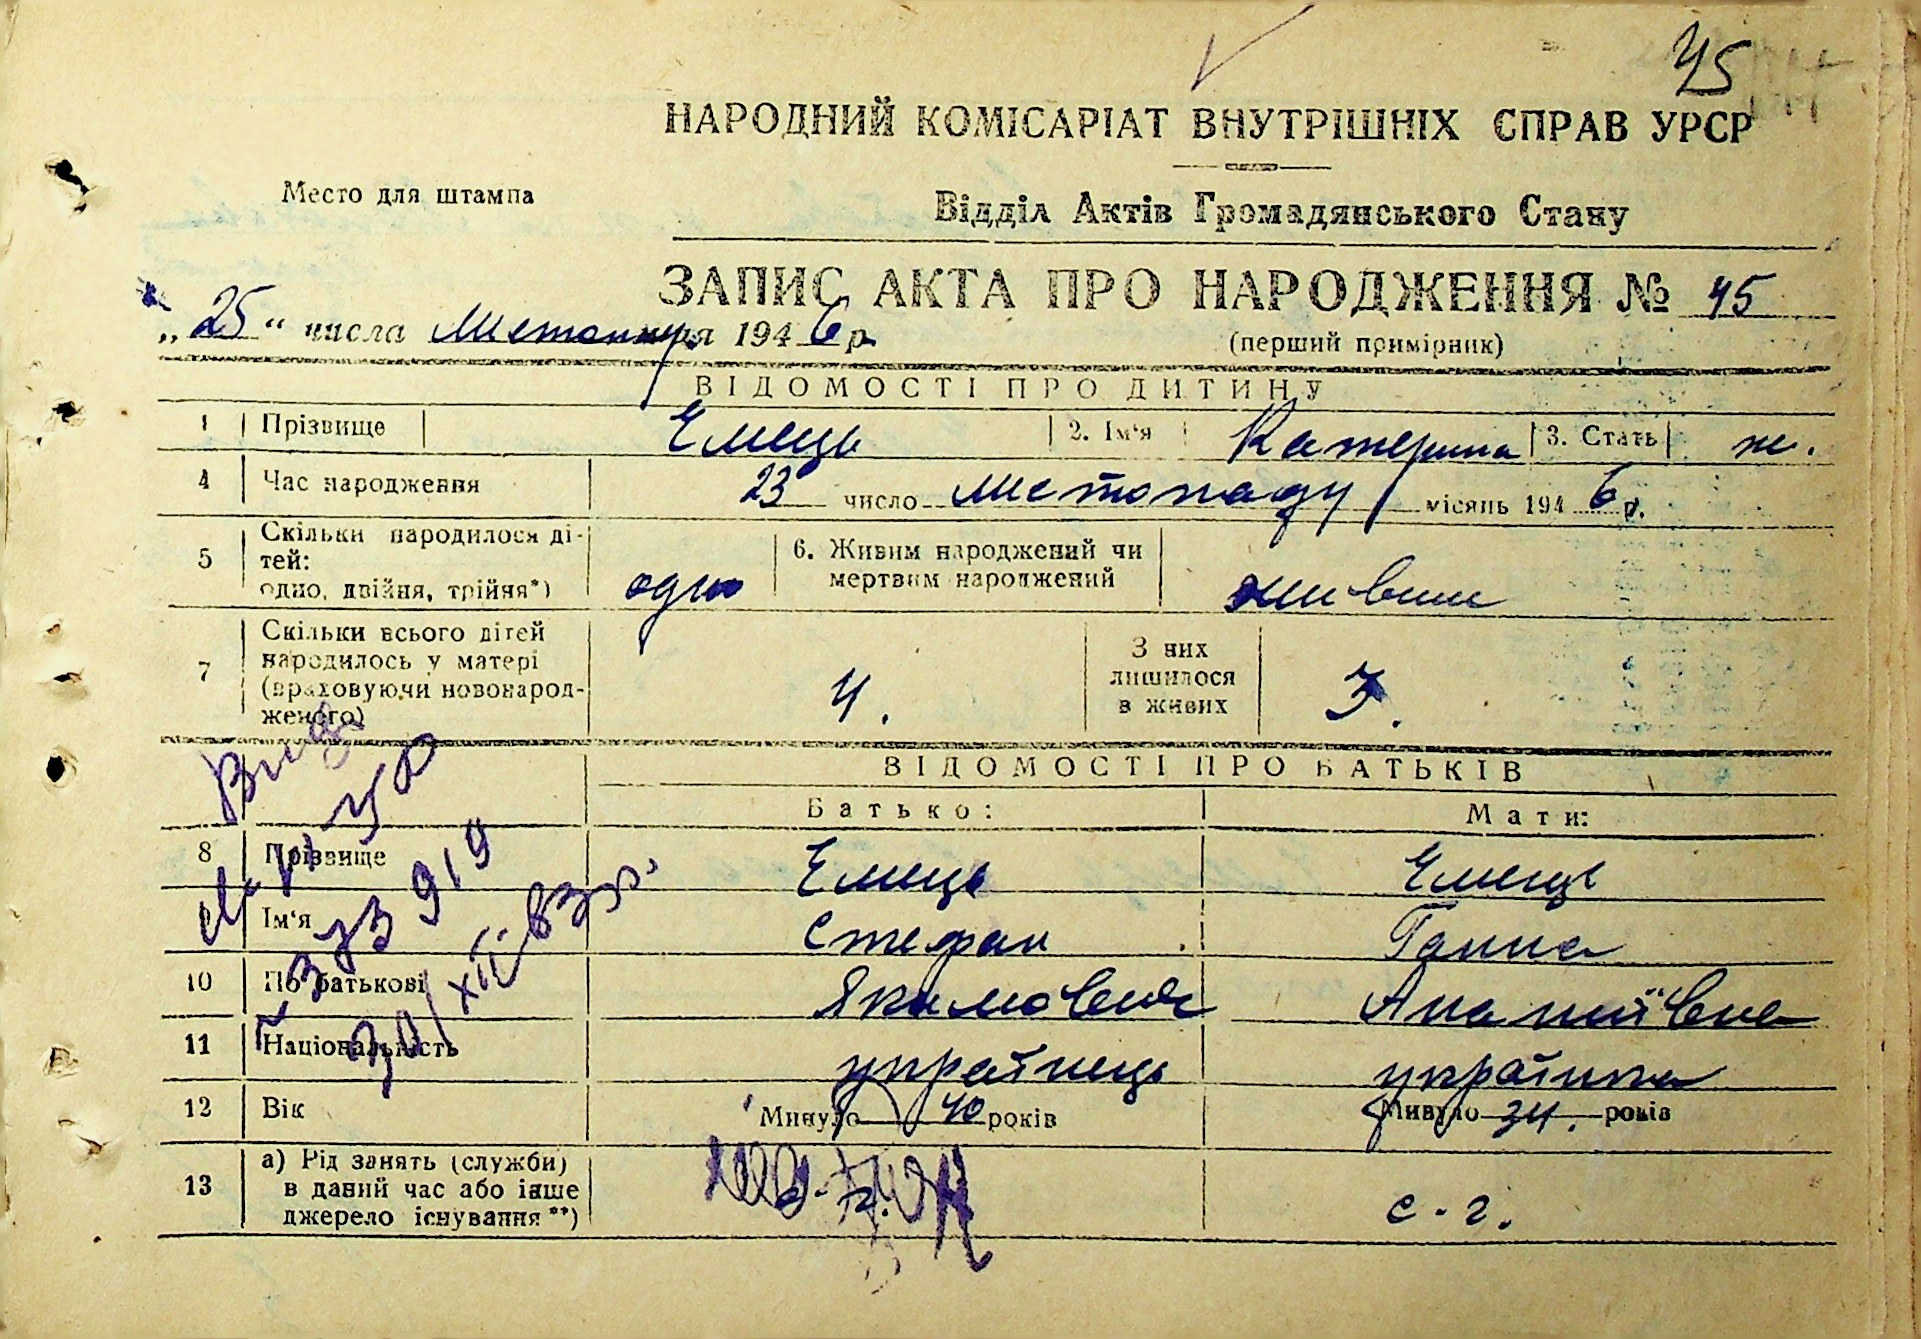 45
НАРОДНИЙ КОМІСАРІАТ ВНУТРІШНІХ СПРАВ УРСР
Место для штампа
Відділ Актів Громадянського Стану
ЗАПИС АКТА ПРО НАРОДЖЕННЯ № 45
„25“ числа Листопада 1946 р.
(перший примірник)
ВІДОМОСТІ ПРО ДИТИНУ
1 Прізвище Ємець 2. Ім'я Катерина 3. Стать ж.
4 Час народження 23 число листопаду місяць 1946 р.
5 Скільки народилося ді-
тей:
одно, двійня, трійня*) одно 6. Живим народжений чи
мертвим народжений живим
7 Скільки всього дітей
народилось у матері
(враховуючи новонарод-
женого) 4. З них
лишилося
в живих 3.
ВІДОМОСТІ ПРО БАТЬКІВ
Батько: Мати:
8 Прізвище Ємець Ємець
9 Ім'я Стефан Ганна
10 По батькові Якимович Ананіївна
11 Національність українець українка
12 Вік Минуло 40 років Минуло 34. років
13 а) Рід занять (служби)
в даний час або інше
джерело існування**) с-г. с-г.
30/XII-83р.